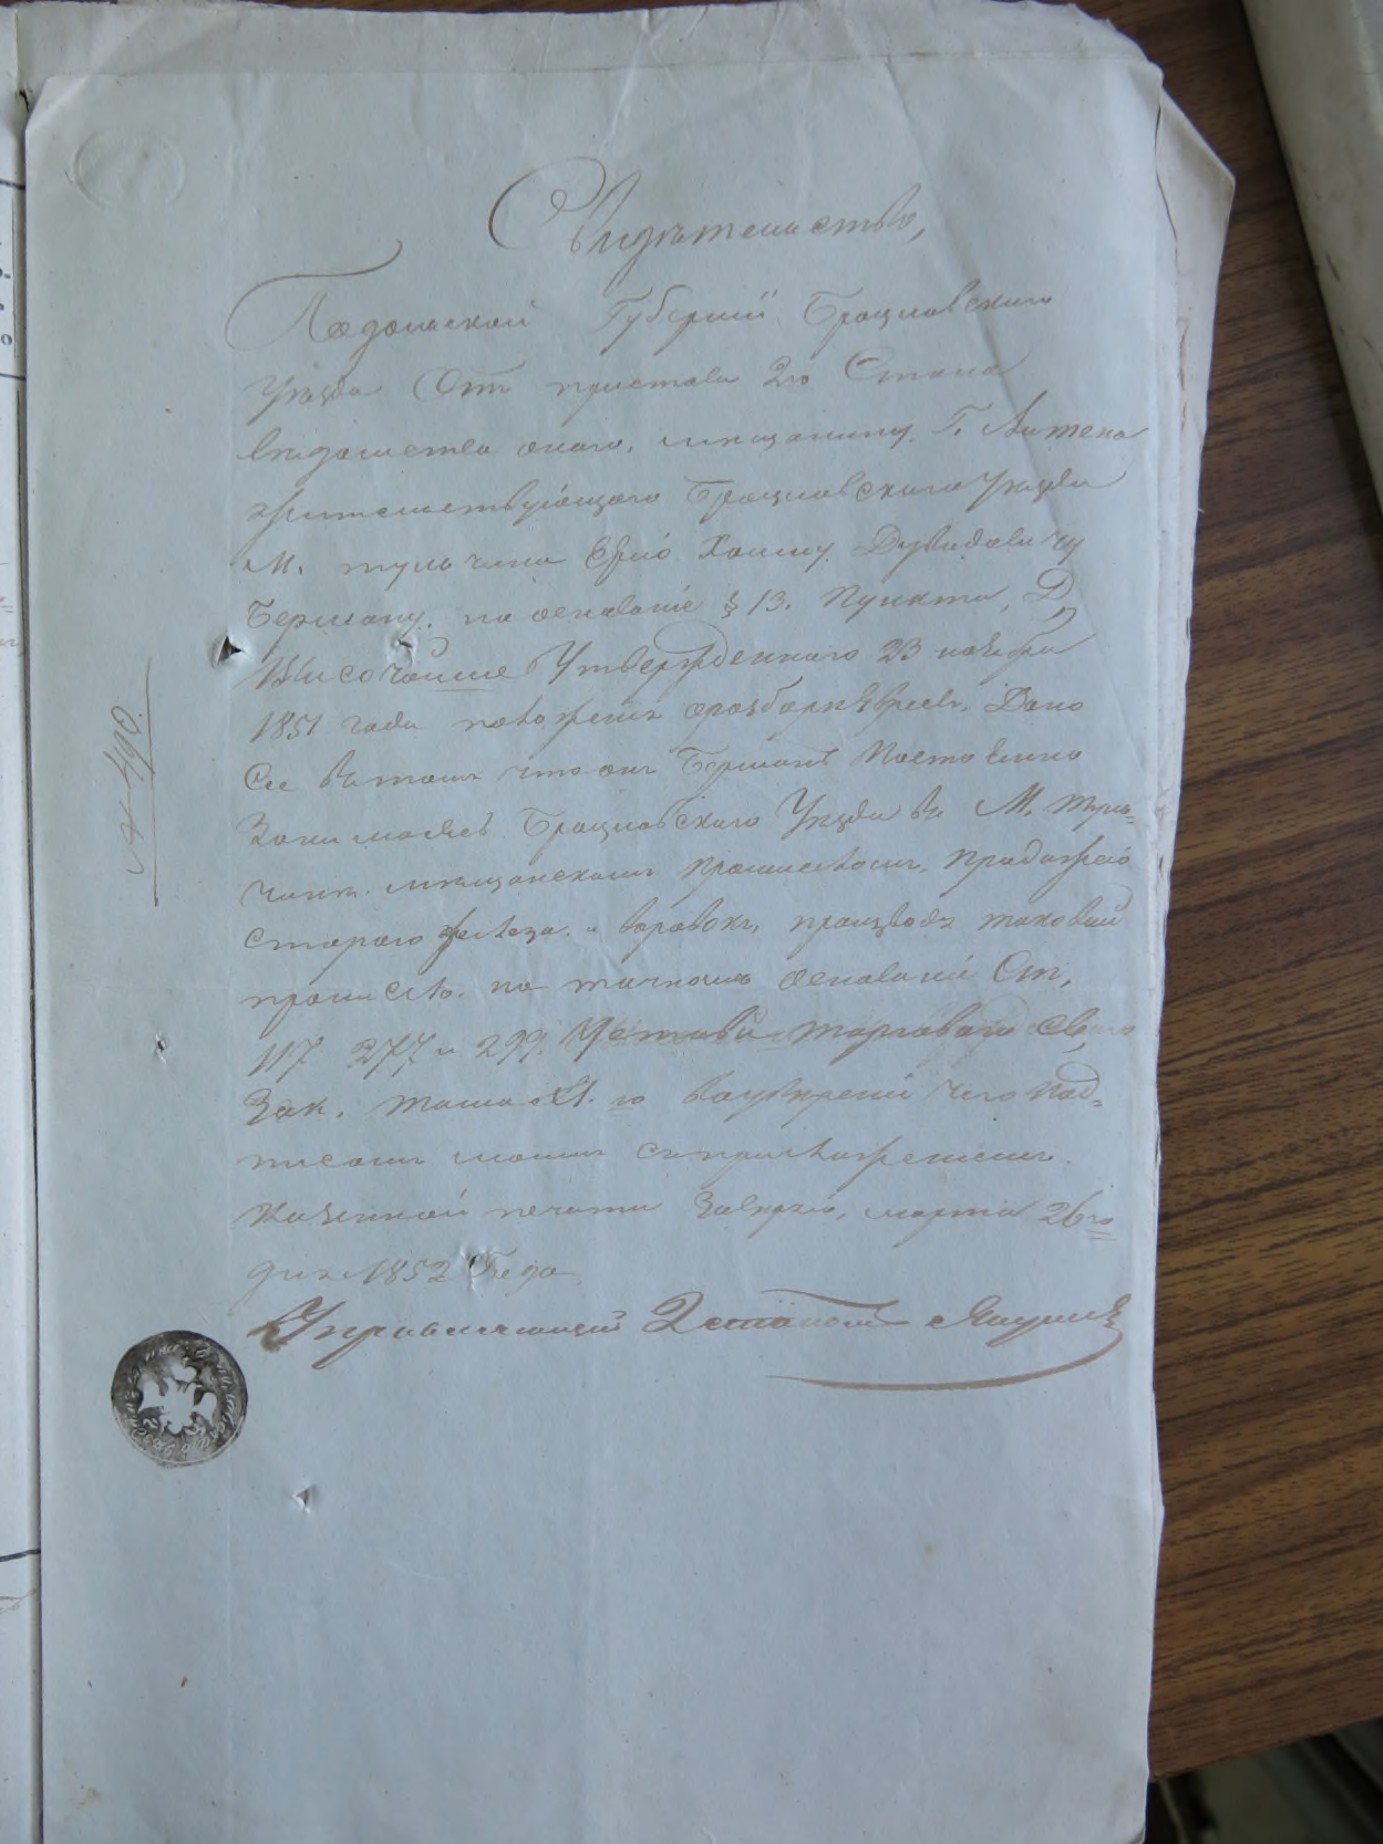 Свидѣтельство,
Подольской Губерніи Брацлавского
Уѣзда Отъ пристава 2го Стана
вѣдомства оного, мѣщанину Г. Литена
жительствующаго Брацлавского Уѣзда
М. тульчина Еврею Хаиму Дувидовичу
Берману, на основаніе § 13. Пункта, Д,
Высочайше Утвержденного 23 ноября
1851 года положенія о разборѣ Евреевъ. Дано
Сіе въ томъ что онъ Берманъ Постоянно
Занимается Брацлавского Уѣзда въ М. Туль=
чинѣ мѣщанскимъ промысломъ, продажею
старого железа и вѣровокъ, производя таковый
промыслъ на точномъ основаніи Ст,
117 277 и 299 Устава торговаго Св,
Зак. тома XI. го въ увѣреніи чего под=
писомъ моимъ съ приложеніемъ
казенной печати Завѣряю, марта 26го
дня 1852 Года
Управляющій 2 станомъ
№ 490.